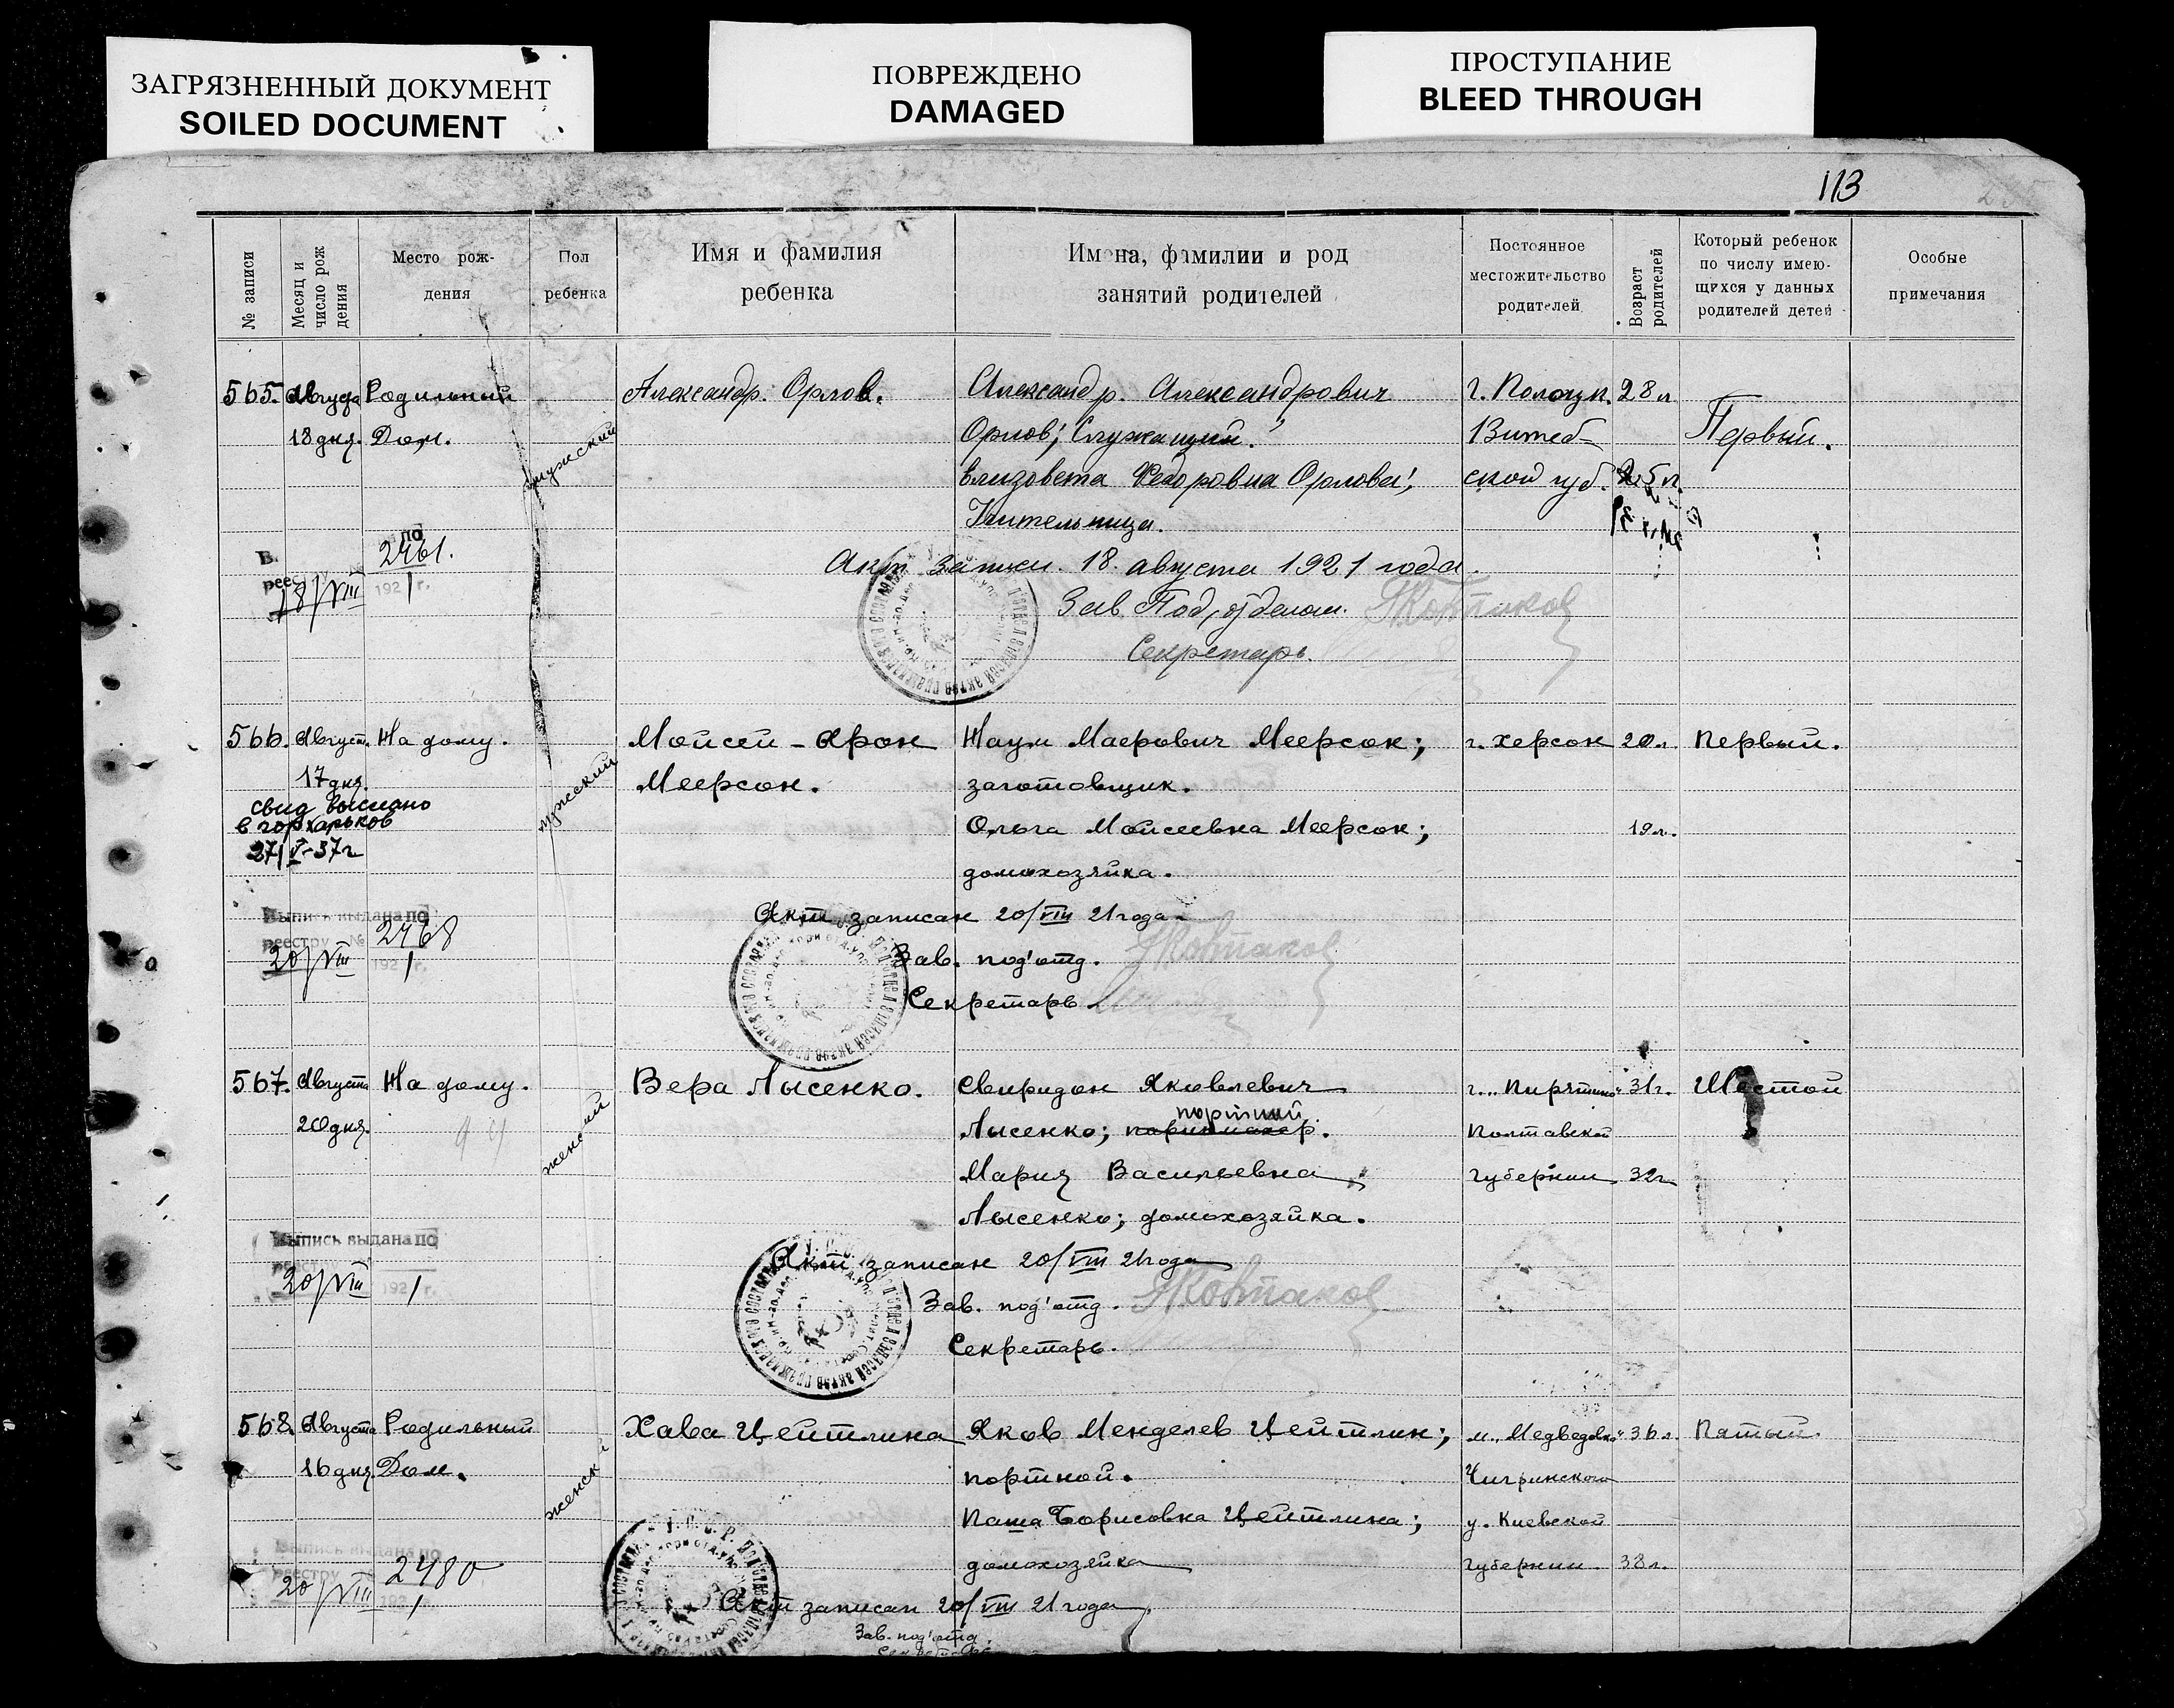 ЗАГРЯЗНЕННЫЙ ДОКУМЕНТ
SOILED DOCUMENT
ПОВРЕЖДЕНО
DAMAGED
ПРОСТУПАНИЕ
BLEED THROUGH
113
№ записи
Месяц и число рож дения
Место рож-
дения
Пол
ребенка
Имя и фамилия
ребенка
Имена, фамилии и род
занятий родителей
Постоянное
местожительство
родителей
Возраст родителей
Который ребенок
по числу имею-
щихся у данных
родителей детей
Особые
примечания
565. Августа Родильный Александр. Орлов. Александр. Александрович 28 л
18 дня. Дом. мужский Орлов; Служащий. Витеб- Первый.
Елизовета Федоровна Орлова; ской губ.
Учительница.
по
2461.
реестру
18/VIII 1921 г.
Акт записи. 18. августа 1921 года.
Зав. Под,отделом.
Секретарь.
566. Август. На дому. мужский Моисей-Арон Наум Маерович Меерсон; г. Херсон 20 л. Первый.
17 дня. Меерсон. заготовщик.
свид выслано
в гор Харьков
27/V-37г
Ольга Моисеевна Меерсон; 19 л.
домохозяйка.
Выпись выдана по
реестру № 2468
20/VIII 1921 г.
Акт записан 20/VIII 21 года
Зав. под'отд.
Секретарь
567. Августа На дому. женский Вера Лысенко. Свиридон Яковлевич г. 31 г. Шестой
20 дня. портной
Лысенко; парикмахер. Полтавской
Мария Васильевна губернии 32 г
Лысенко; домохозяйка.
Выпись выдана по
20/VIII 1921 г.
Акт записан 20/VIII 21 года
Зав. под'отд.
Секретарь.
568. Августа Родильный женск Хава Цейтлина Яков Менделев Цейтлин; м. „Медведовка“ 36 л. Пятый.
16 дня. Дом. портной. Чигринского
Паша Борисовна Цейтлина; у. Киевской
домохозяйка губернии. 38 л.
Выпись выдана по
реестру 2480
20/VIII 1921
Акт записан 20/VIII 21 года
Зав. под'отд.